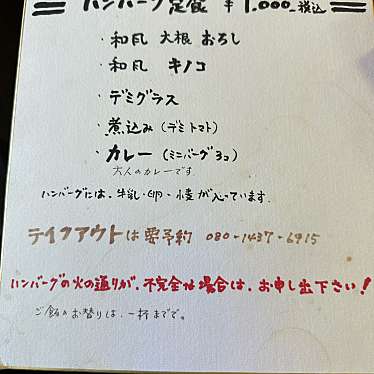 ハンバーグ定食 ¥1,000-税込
・和風 大根おろし
・和風 キノコ
・デミグラス
・煮込み(デミトマト)
・カレー(ミニバーグ3コ)
大人のカレーです
ハンバーグには、牛乳・卵・小麦が入っています.
テイクアウトは要予約 080-1437-6915
ハンバーグの火の通りが、不完全な場合は、お申し出下さい!
ご飯のお替りは、一杯まで。